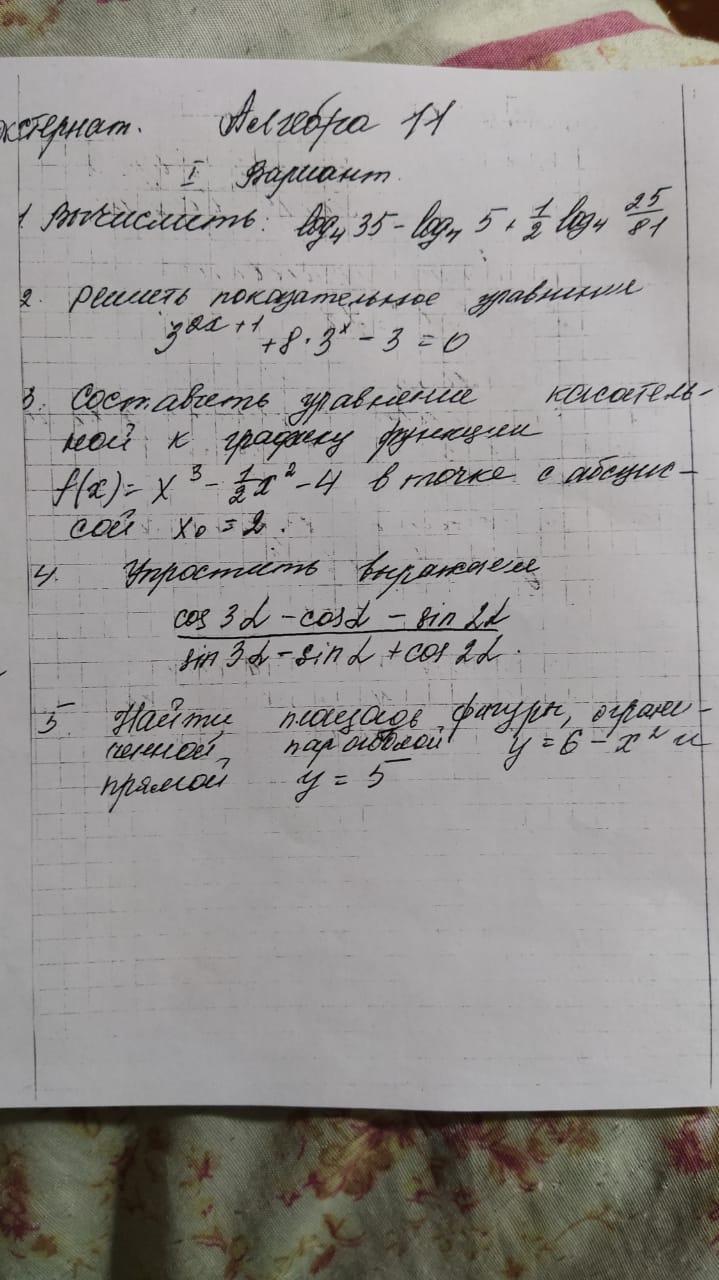 экстернат. Алгебра 11
I Вариант.
1. Вычислить: log₄ 35 - log₄ 5 + 1/2 log₄ 25/81
2. Решить показательное уравнения
3^(2x+1) + 8 · 3^x - 3 = 0
3. Составить уравнение касатель-
ной к графику функции
f(x) = x³ - 1/2 x² - 4 в точке с абсцис-
сой x₀ = 2.
4. Упростить выражаем
(cos 3α - cos α - sin 2α) / (sin 3α - sin α + cos 2α).
5. Найти площадь фигуры, ограни-
ченной, параболой y = 6 - x² и
прямой y = 5